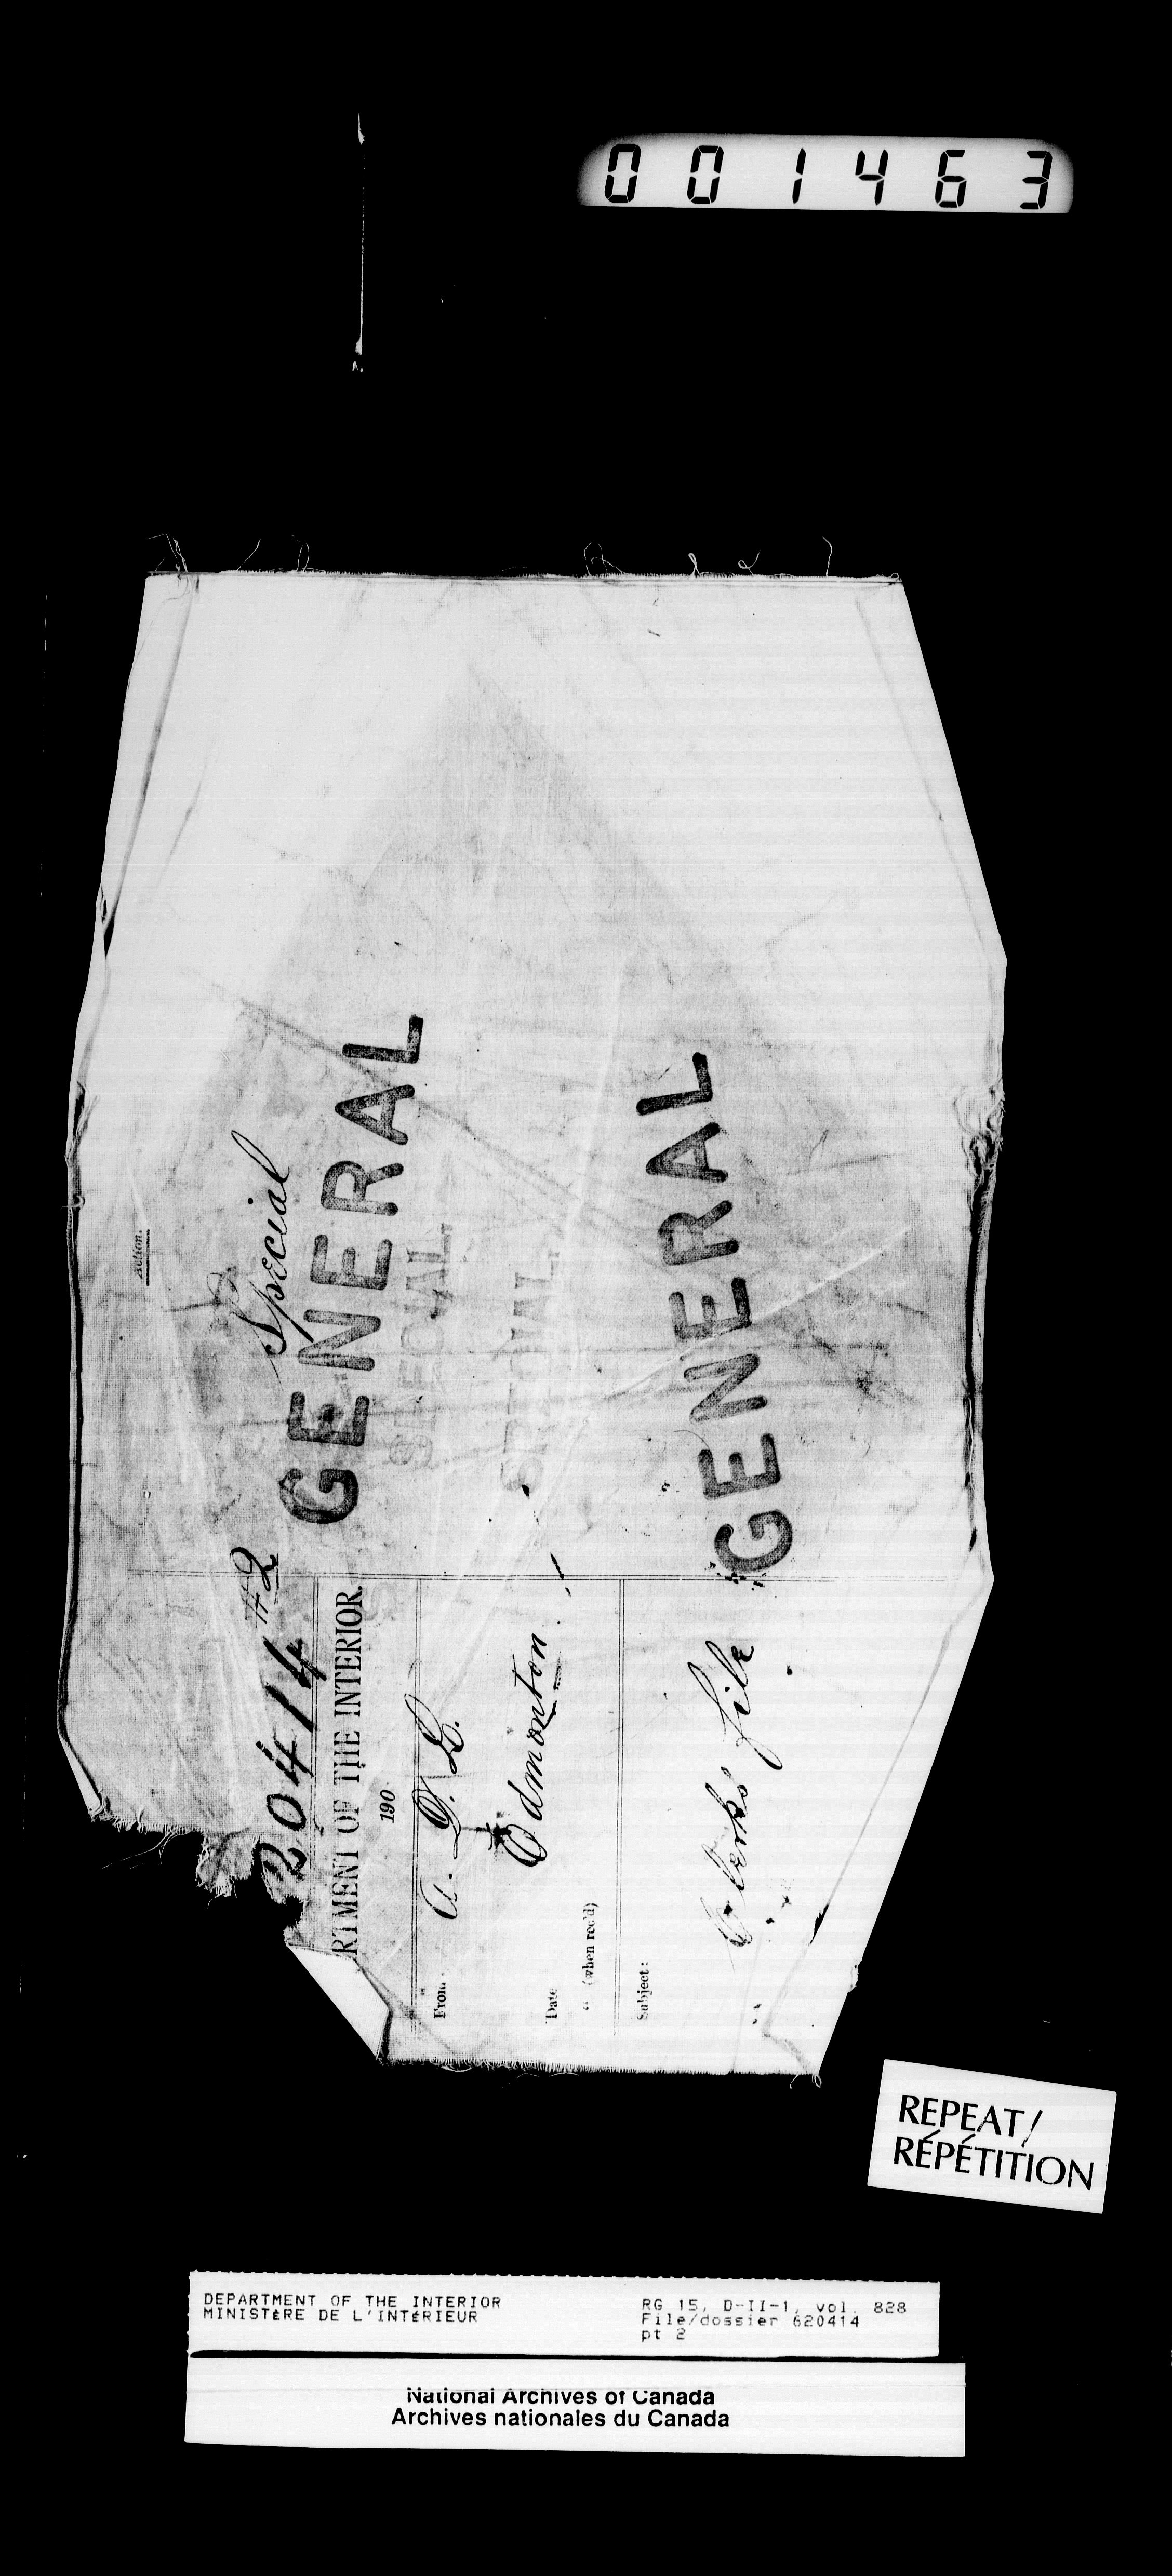 001463
Action.
Special
GENERAL
SPECIAL
SPECIAL
GENERAL
20414 #2
RTMENT OF THE INTERIOR.
190
From
A. D. L.
Edmonton
Date
" (when rec'd)
Subject:
Clerks file
REPEAT/
RÉPÉTITION
DEPARTMENT OF THE INTERIOR
MINISTÈRE DE L'INTÉRIEUR
RG 15, D-II-1, vol. 828
File/dossier 620414
pt 2
National Archives of Canada
Archives nationales du Canada